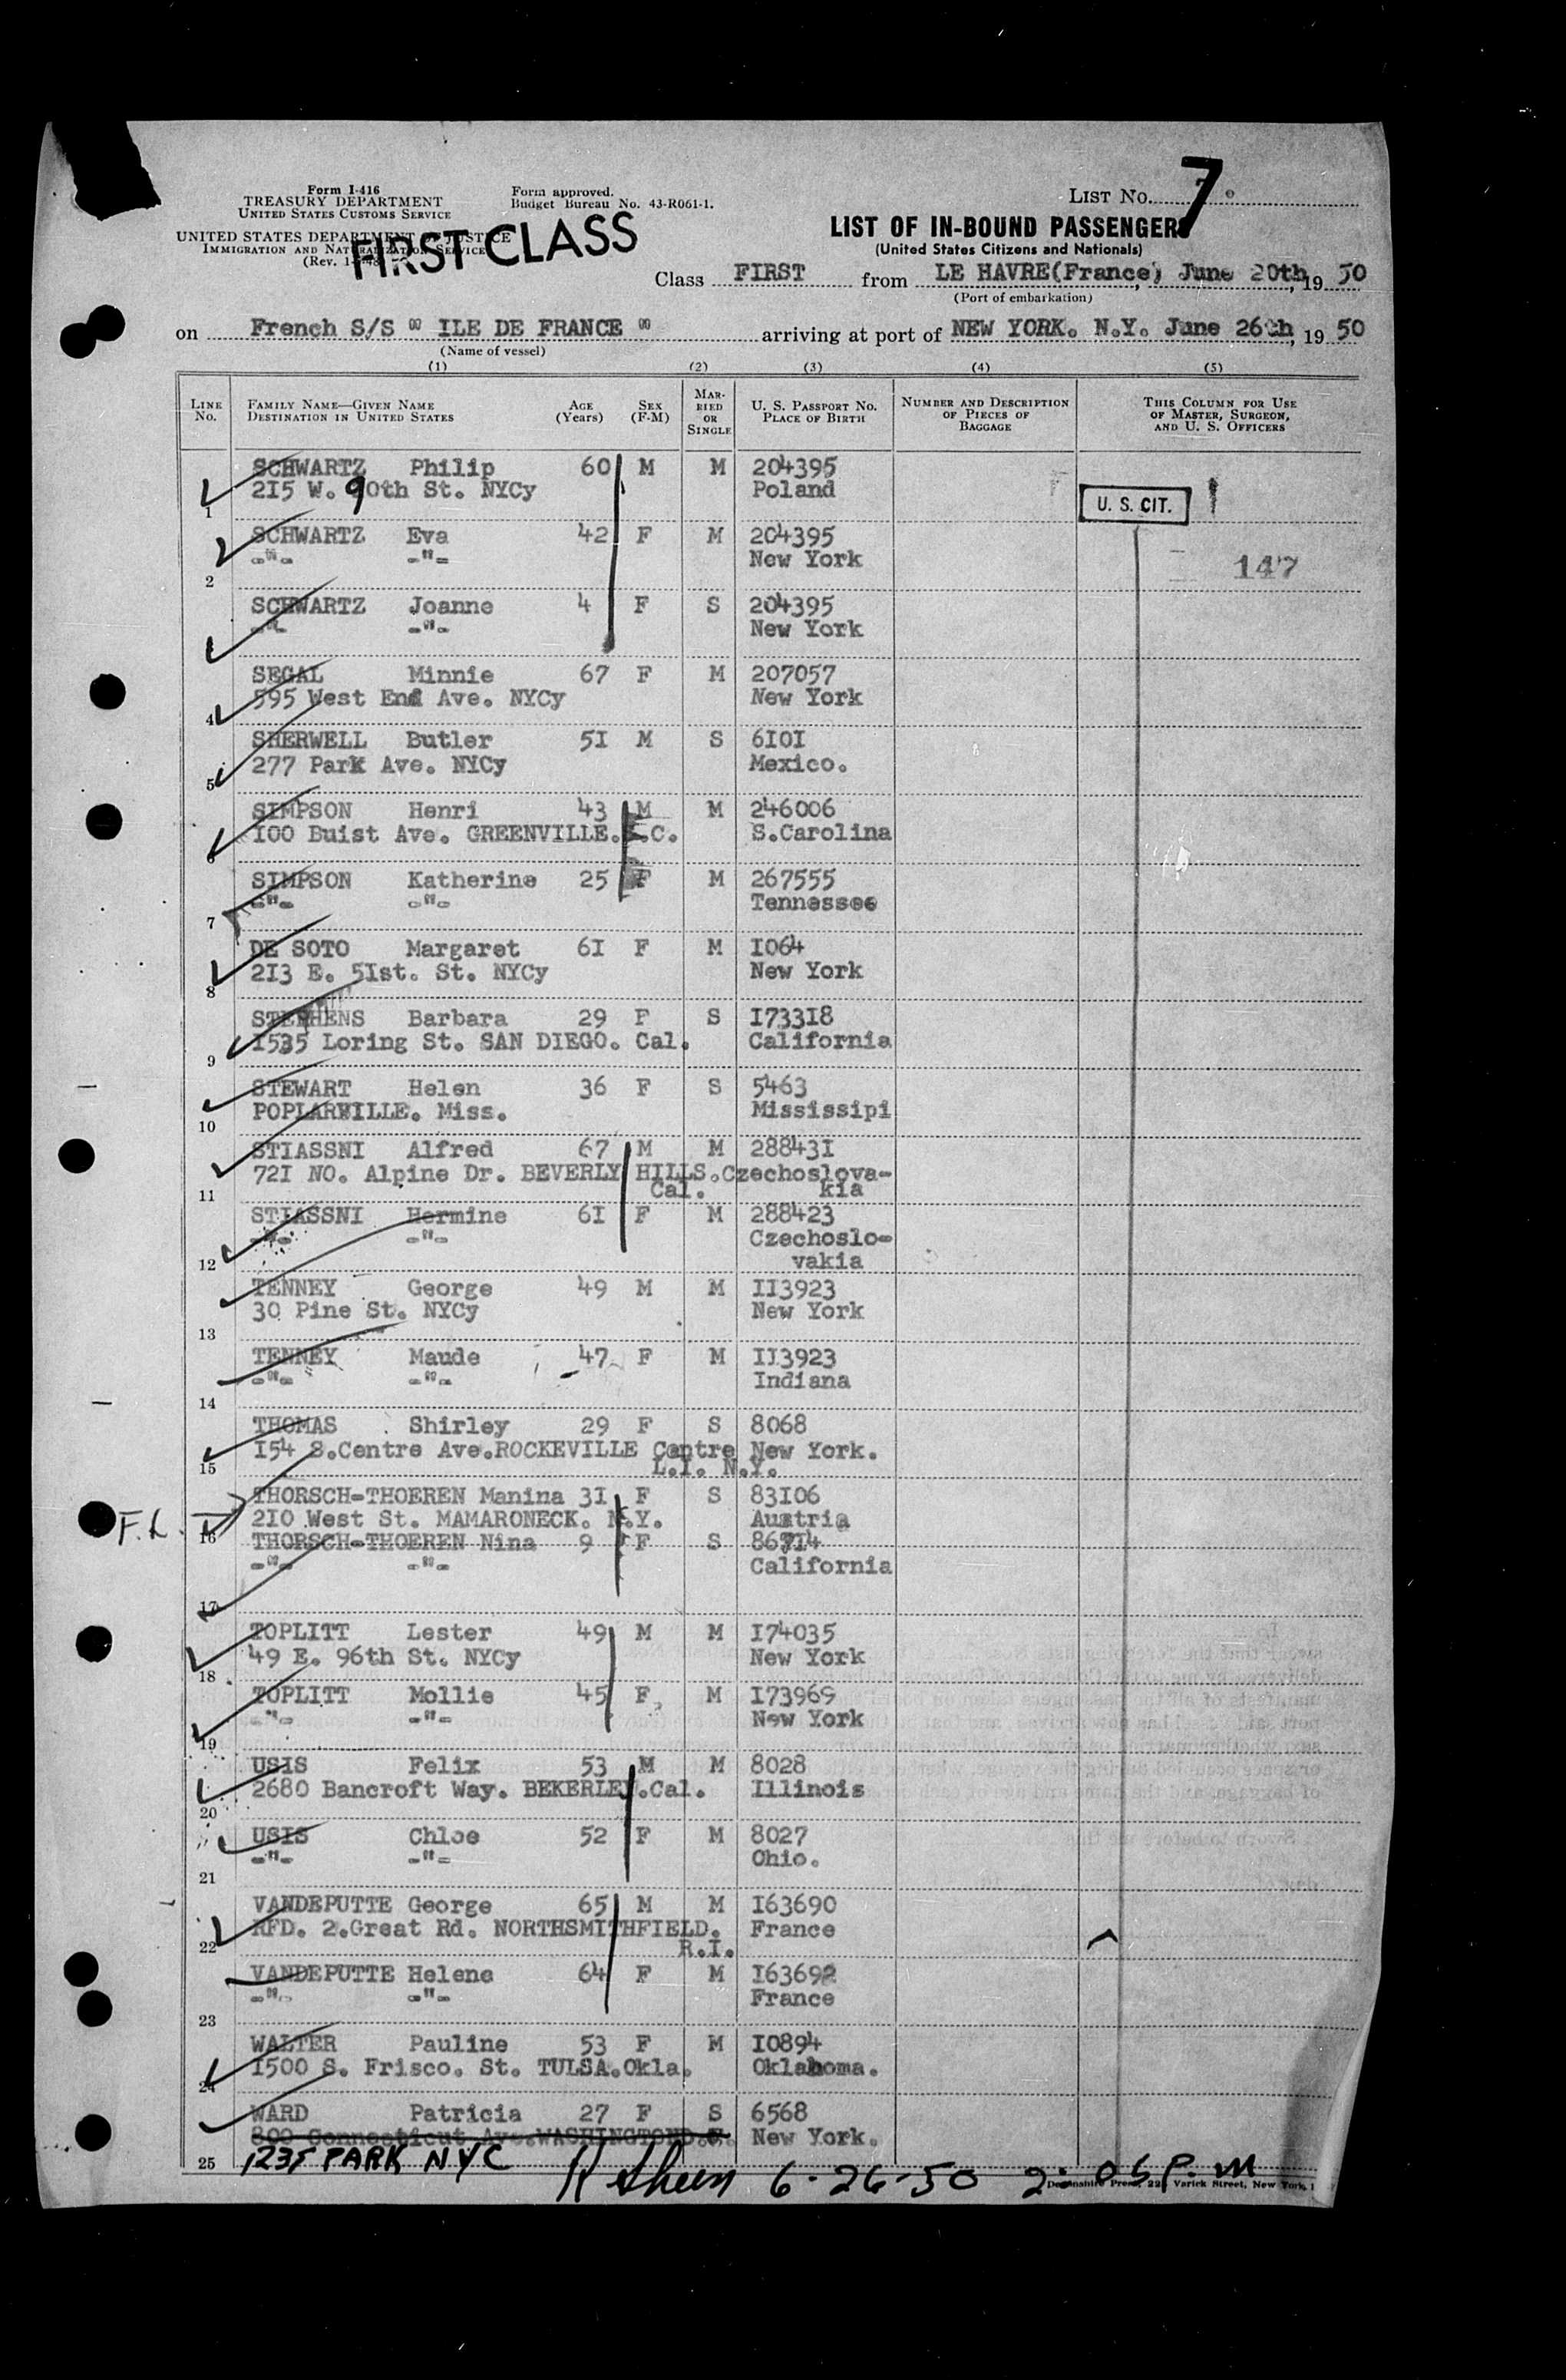 Form I-416
TREASURY DEPARTMENT
UNITED STATES CUSTOMS SERVICE
UNITED STATES DEPARTMENT OF JUSTICE
IMMIGRATION AND NATURALIZATION SERVICE
(Rev.
Form approved.
Budget Bureau No. 43-R061-1.
FIRST CLASS
LIST No. 7
LIST OF IN-BOUND PASSENGERS
(United States Citizens and Nationals)
Class FIRST from LE HAVRE(France) June 20th, 19 50
(Port of embarkation)
on French S/S " ILE DE FRANCE " arriving at port of NEW YORK. N.Y. June 26th, 19 50
(Name of vessel)
(1) (2) (3) (4) (5)
LINE No. FAMILY NAME—GIVEN NAME DESTINATION IN UNITED STATES AGE (Years) SEX (F-M) MARRIED OR SINGLE U. S. PASSPORT NO. PLACE OF BIRTH NUMBER AND DESCRIPTION OF PIECES OF BAGGAGE THIS COLUMN FOR USE OF MASTER, SURGEON, AND U. S. OFFICERS
SCHWARTZ Philip 60 M M 204395
1 215 W. 90th St. NYCy Poland U. S. CIT.
SCHWARTZ Eva 42 F M 204395
2 -"- -"- New York 147
SCHWARTZ Joanne 4 F S 204395
-"- -"- New York
SEGAL Minnie 67 F M 207057
4 595 West End Ave. NYCy New York
SHERWELL Butler 5I M S 6I0I
5 277 Park Ave. NYCy Mexico.
SIMPSON Henri 43 M M 246006
6 I00 Buist Ave. GREENVILLE. .C. S.Carolina
SIMPSON Katherine 25 F M 267555
7 -"- -"- Tennessee
DE SOTO Margaret 6I F M I064
8 2I3 E. 5Ist. St. NYCy New York
STEPHENS Barbara 29 F S I733I8
9 I535 Loring St. SAN DIEGO. Cal. California
STEWART Helen 36 F S 5463
10 POPLARVILLE. Miss. Mississipi
STIASSNI Alfred 67 M M 28843I
11 72I NO. Alpine Dr. BEVERLY HILLS. Cal. Czechoslova-kia
STIASSNI Hermine 6I F M 288423
12 -"- -"- Czechoslo-vakia
TENNEY George 49 M M II3923
13 30 Pine St. NYCy New York
TENNEY Maude 47 F M II3923
14 -"- -"- Indiana
THOMAS Shirley 29 F S 8068
15 I54 S.Centre Ave.ROCKEVILLE Centre L.I. N.Y. New York.
THORSCH-THOEREN Manina 3I F S 83I06
F.L. 16 2I0 West St. MAMARONECK. N.Y. Austria
THORSCH-THOEREN Nina 9 F S
17 -"- -"- California
TOPLITT Lester 49 M M I74035
18 49 E. 96th St. NYCy New York
TOPLITT Mollie 45 F M I73969
19 -"- -"- New York
USIS Felix 53 M M 8028
20 2680 Bancroft Way. BEKERLEY.Cal. Illinois
USIS Chloe 52 F M 8027
21 -"- -"- Ohio.
VANDEPUTTE George 65 M M I63690
22 RFD. 2.Great Rd. NORTHSMITHFIELD. R.I. France
VANDEPUTTE Helene 64 F M I63692
23 -"- -"- France
WALTER Pauline 53 F M I0894
24 I500 S. Frisco. St. TULSA.Okla. Oklahoma.
WARD Patricia 27 F S 6568
800 Connecticut Av. WASHINGTON New York.
25 1235 PARK NYC 6-26-50 2:05 P.M
Varick Street, New York